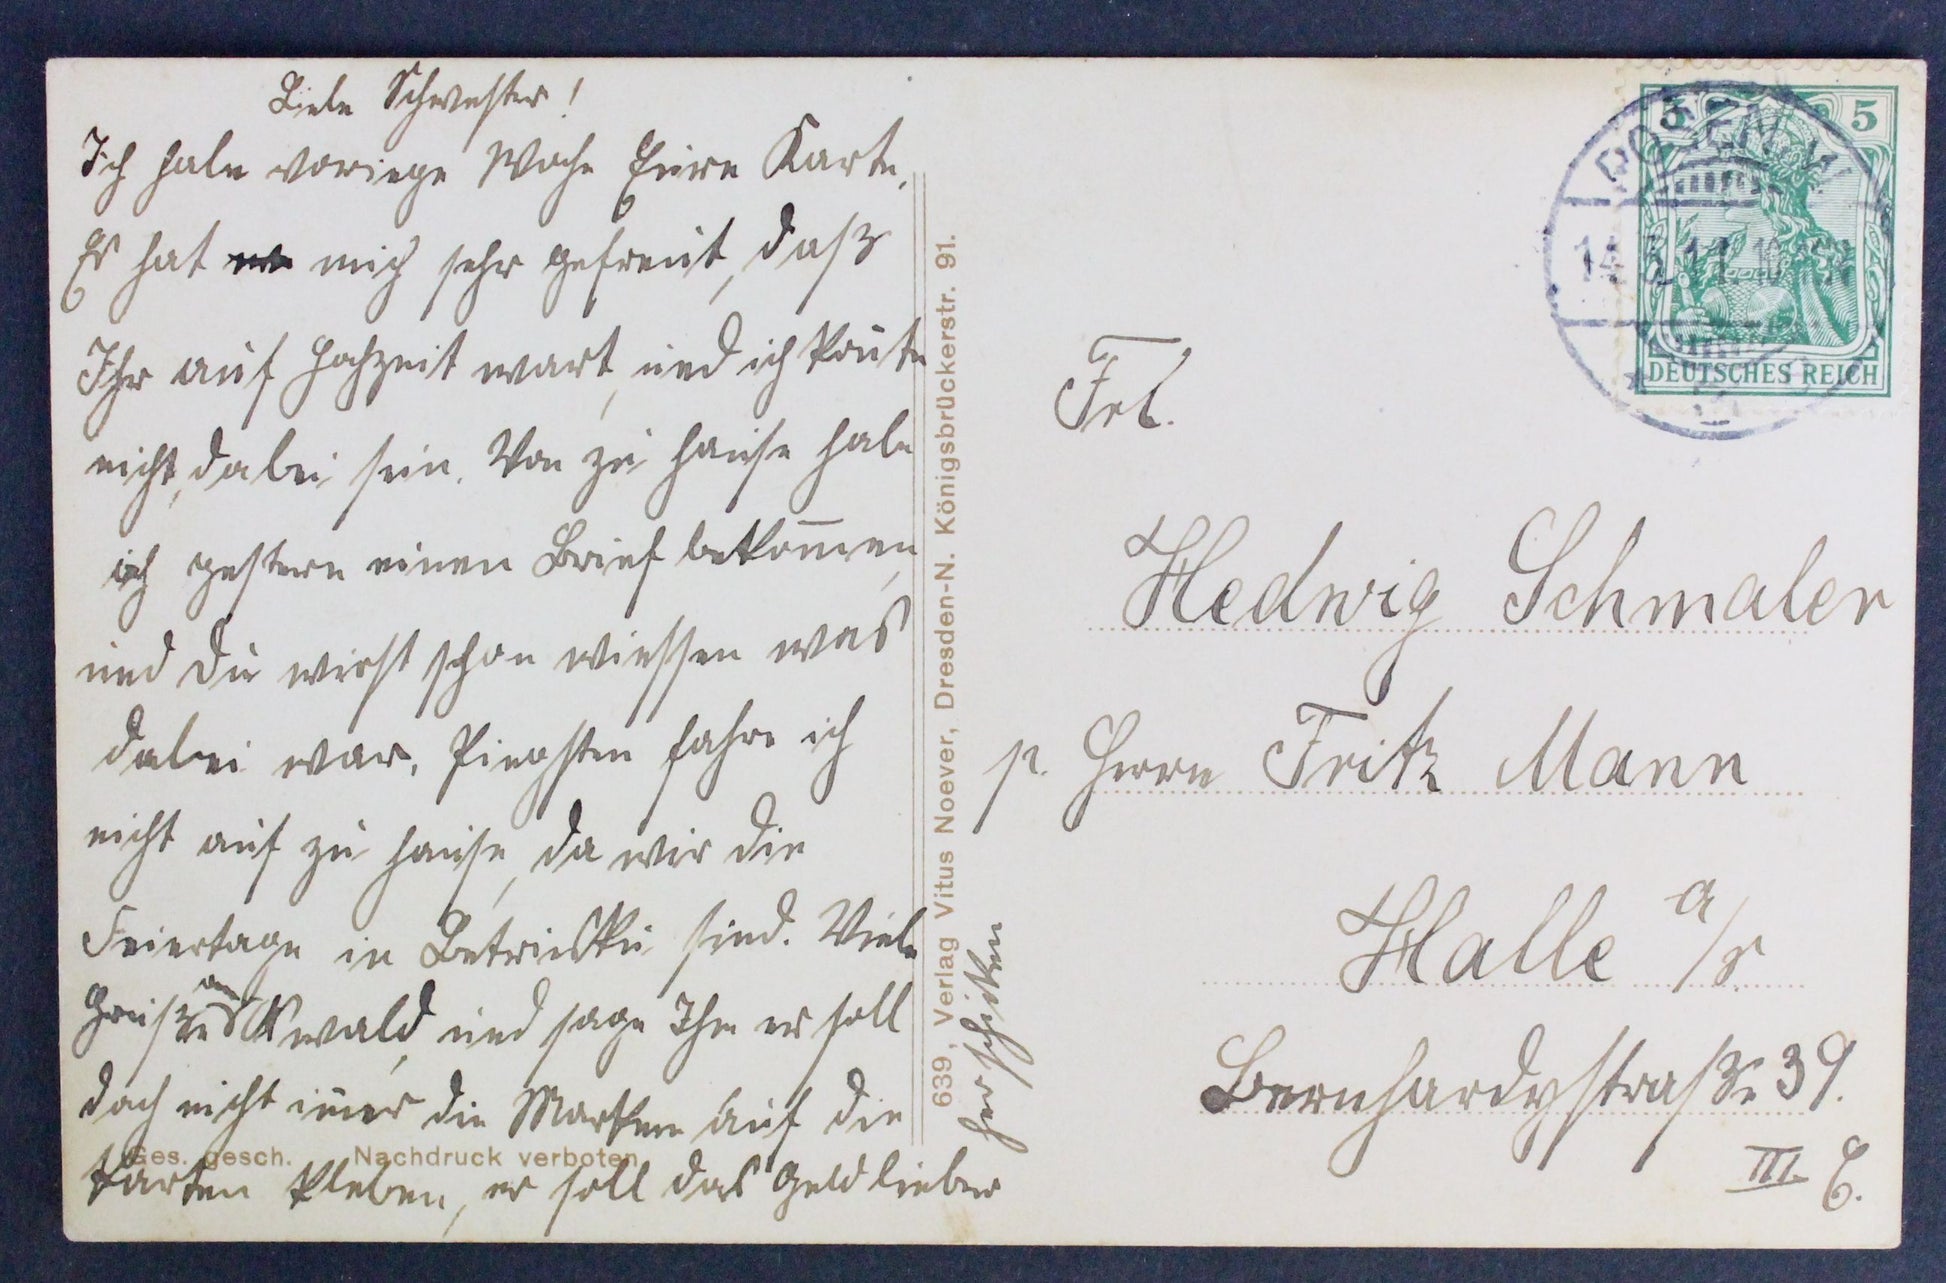 Liebe Schwester!
Ich habe voriege Woche Eure Karte.
Es hat mich sehr gefreut, daß
Ihr auf Hochzeit wart, und ich konte
nicht dabei sein. Von zu hause habe
ich gestern einen Brief bekom̅en,
und Du wirst schon wiessen was
dabei war. Pingsten fahre ich
nicht auf zu hause, da wir die
Feiertage in sind. Viele
Grüsse an Oswald, und sage Ihm er soll
doch nicht im̅er die Marken auf die
Karten kleben, er soll das Geld lieber
her schiken
Ges. gesch. Nachdruck verboten.
639, Verlag Vitus Noever, Dresden-N. Königsbrückerstr. 91.
5 5
DEUTSCHES REICH
POSEN
14.5.11.10
Frl.
Hedwig Schmaler
p. Herrn Fritz Mann
Halle a/S.
Bernhardystraße 39.
III. E.